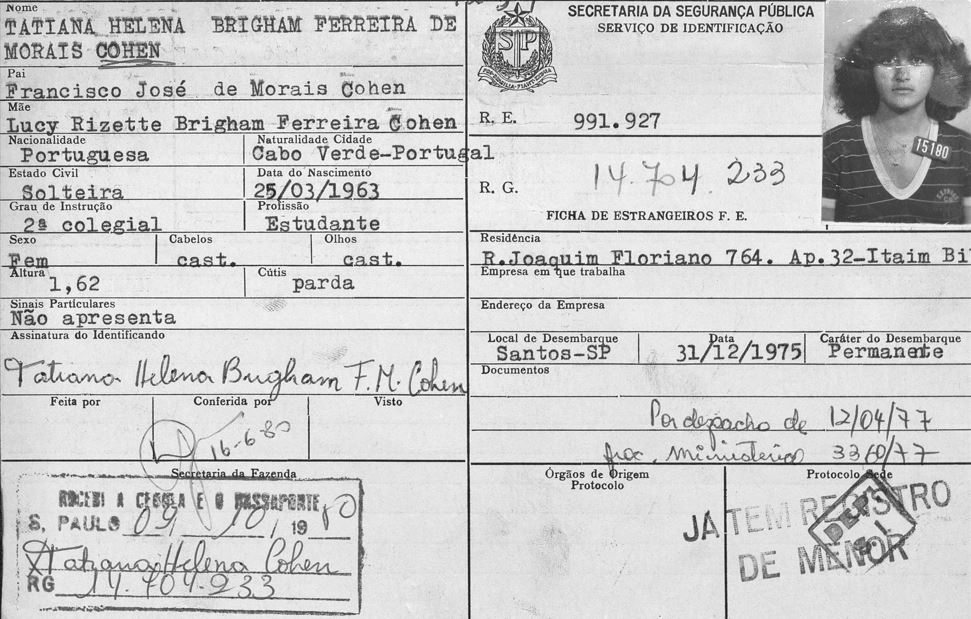 Nome
TATIANA HELENA BRIGHAM FERREIRA DE
MORAIS COHEN
Pai
Francisco José de Morais Cohen
Mãe
Lucy Rizette Brigham Ferreira Cohen
Nacionalidade Naturalidade Cidade
Portuguesa Cabo Verde-Portugal
Estado Civil Data do Nascimento
Solteira 25/03/1963
Grau de Instrução Profissão
2ª colegial Estudante
Sexo Cabelos Olhos
Fem cast. cast.
Altura Cútis
1,62 parda
Sinais Particulares
Não apresenta
Assinatura do Identificando
Tatiana Helena Brigham F.M. Cohen
Feita por Conferida por Visto
16-6-80
Secretaria da Fazenda
RECEBI A CEDULA E O PASSAPORTE
S. PAULO 09 10, 19 80
Tatiana Helena Cohen
RG 14.704.233
SECRETARIA DA SEGURANÇA PÚBLICA
SERVIÇO DE IDENTIFICAÇÃO
SP
R. E. 991.927
R. G. 14.704.233
FICHA DE ESTRANGEIROS F. E.
15180
Residência
R.Joaquim Floriano 764. Ap.32-Itaim Bi
Empresa em que trabalha
Endereço da Empresa
Local de Desembarque Data Caráter do Desembarque
Santos-SP 31/12/1975 Permanete
Documentos
Por despacho de 12/04/77
proc. Ministerio 3360/77
Órgãos de Origem Protocolo Sede
Protocolo
JA TEM REGISTRO
DE MENOR